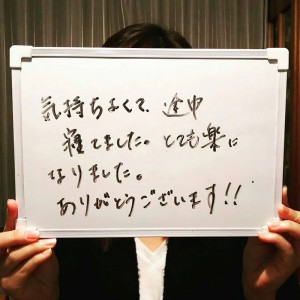 気持ちよくて、途中
寝てました。とても楽に
なりました。
ありがとうございます!!